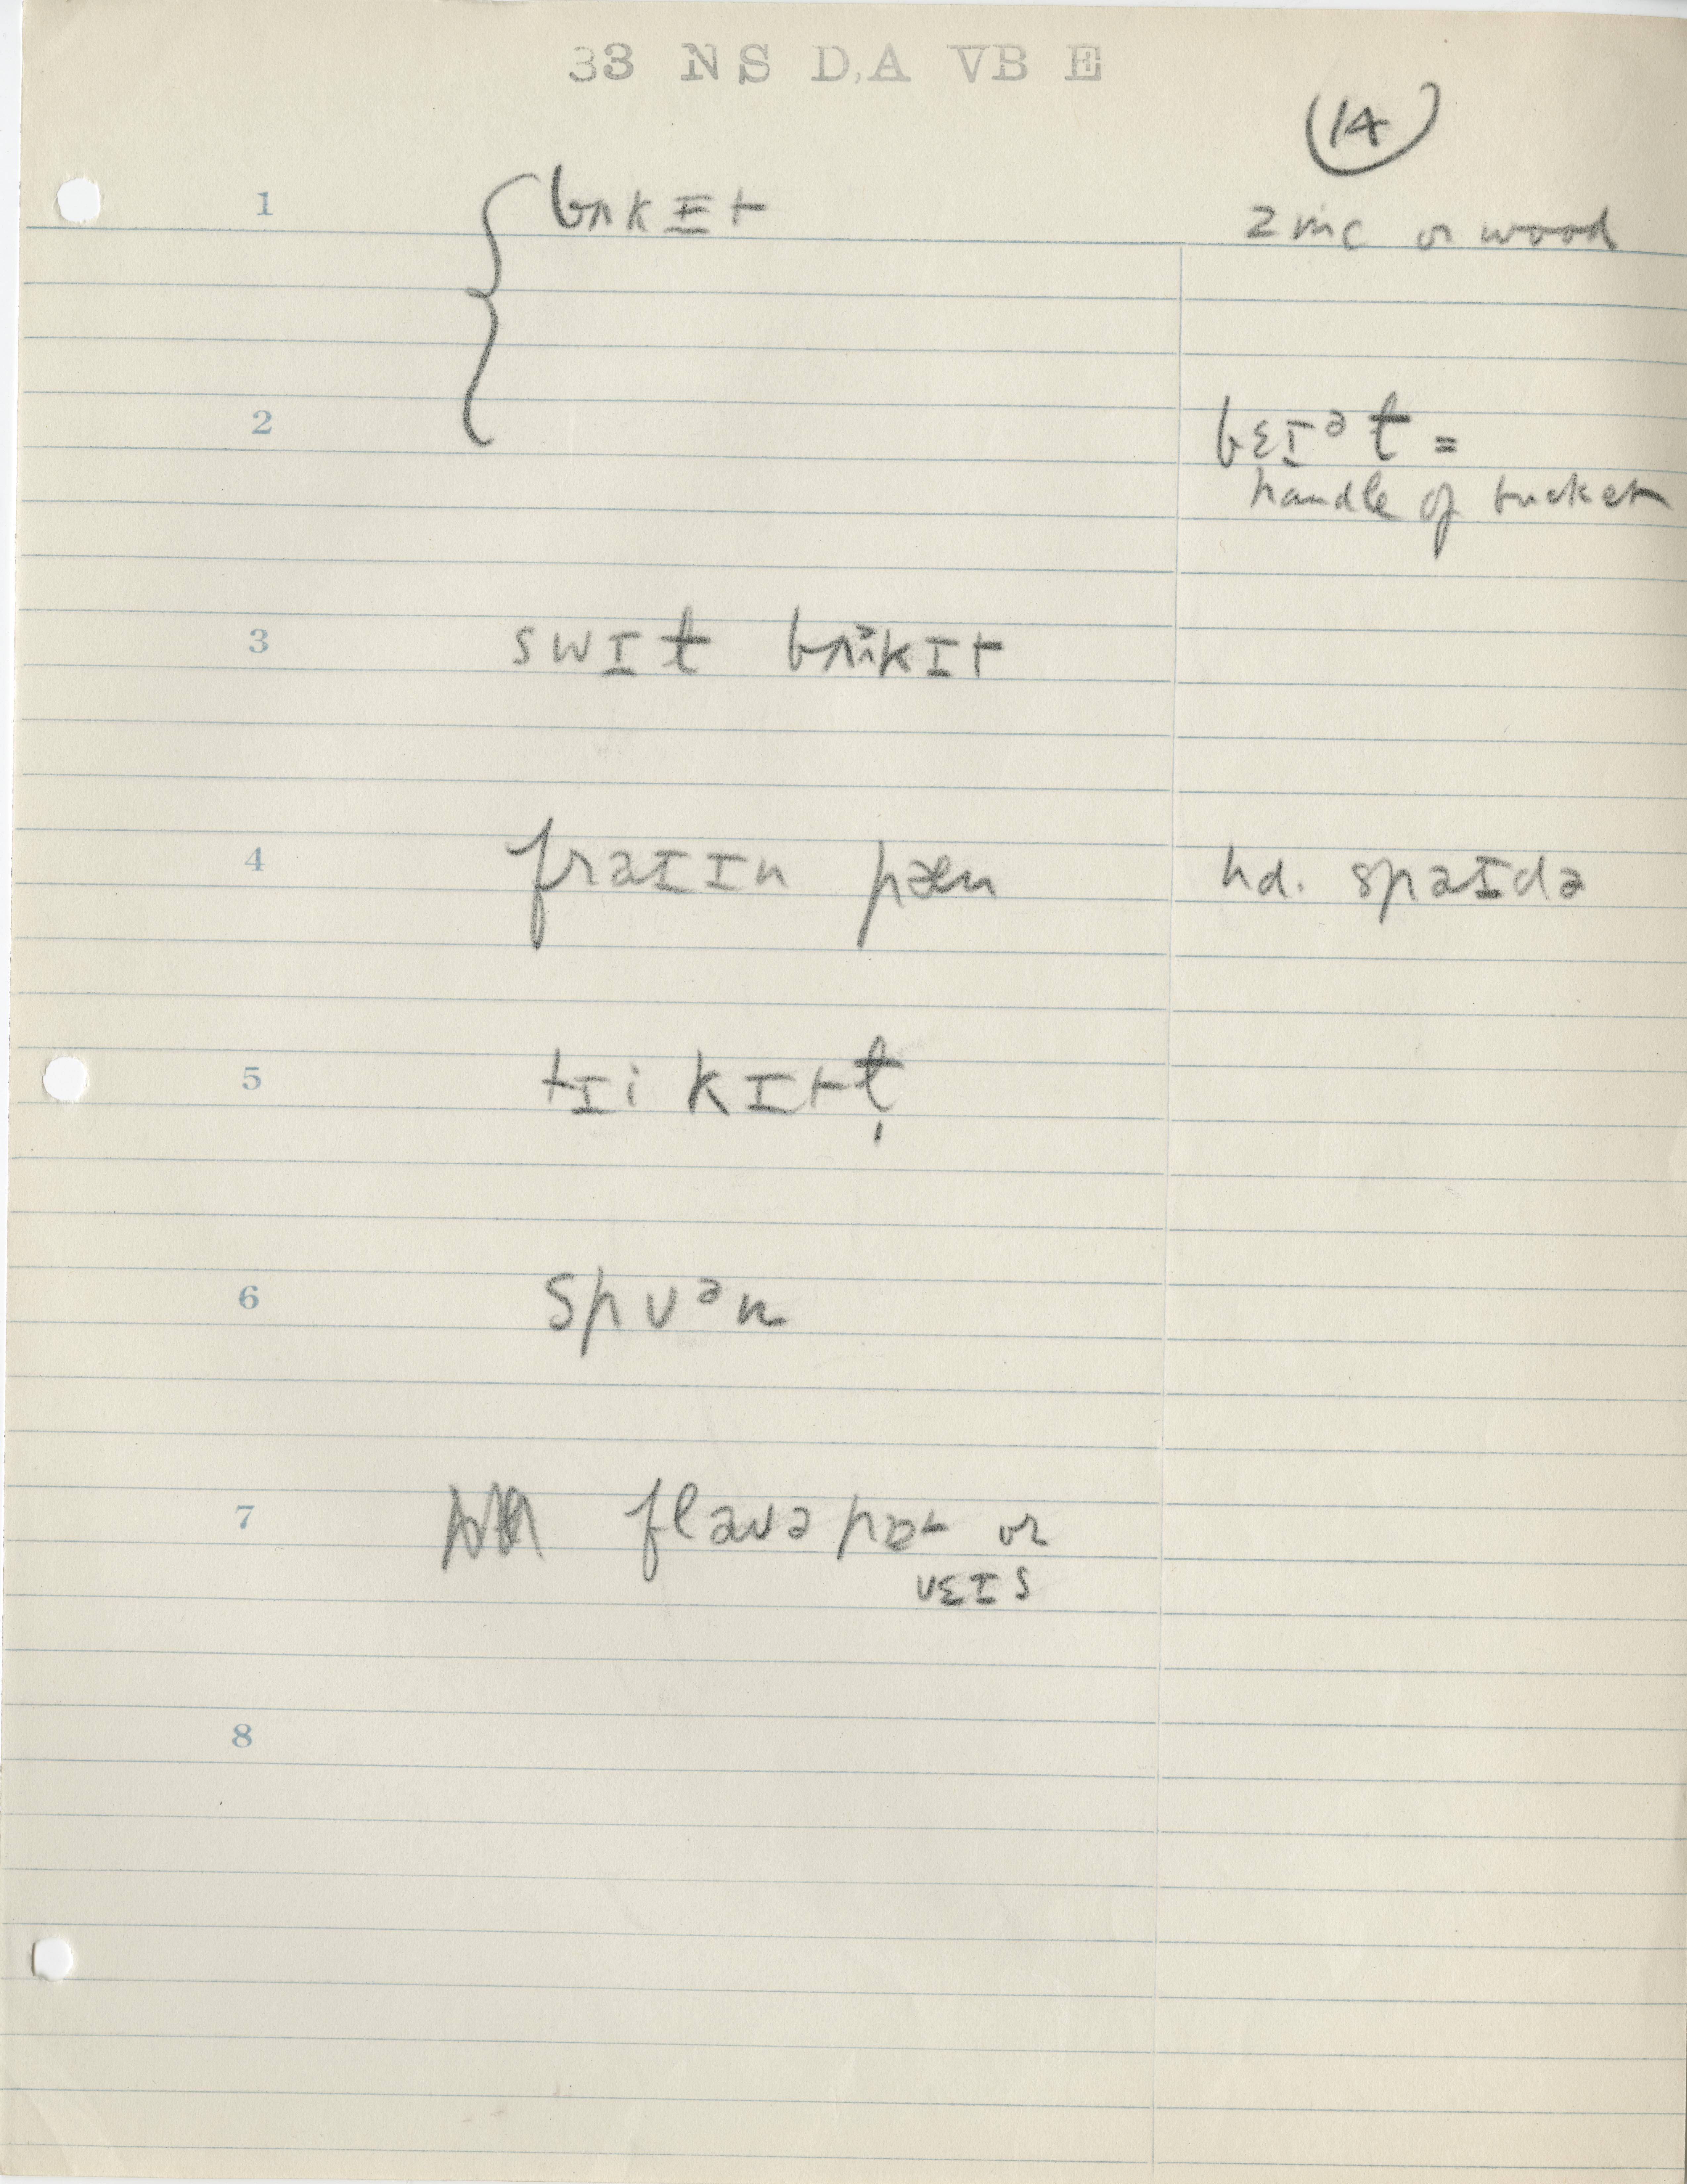 33 NS D,A VB E
14
1 bʌkɪt zinc or wood
2 bɛɪᵊɫ =
handle of bucket
3 swɪɫ bʌkɪt
4 fraɪɪn pæn hd. spaɪdə
5 tɪi kɪtɫ̩
6 spuᵊn
7 flaʊə pɒt or
vɛɪs
8